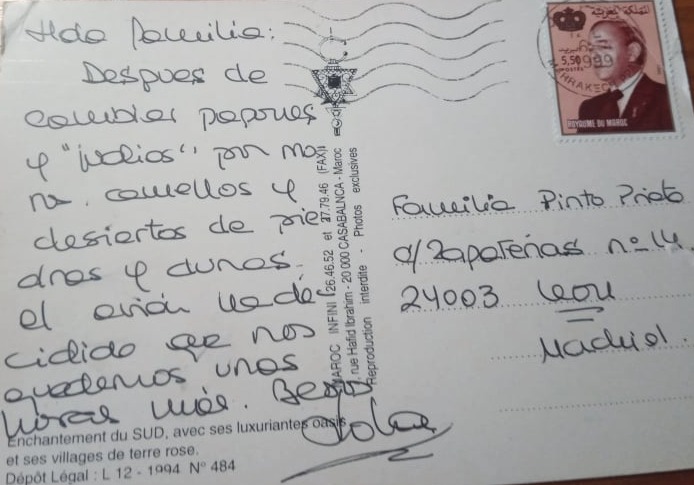 Hola Familia:
Despues de
cambiar papones
y "judios" por mo
ros. camellos y
desiertos de pie
dras y dunas.
el avión ha de
cidido que nos
quedemos unas
horas más. Besos
Enchantement du SUD, avec ses luxuriantes oasis
et ses villages de terre rose.
Dépôt Légal : L 12 - 1994 N° 484
MAROC INFINI 26.46.52 et 27.79.46 (FAX)
rue Hafid Ibrahim - 20 000 CASABALNCA - Maroc
Reproduction interdite - Photos exclusives
المملكة المغربية
5,50
POSTES
1999
MARRAKECH
ROYAUME DU MAROC
Familia Pinto Prieto
c/ Zapaterias nº 14
24003 León
Madrid.